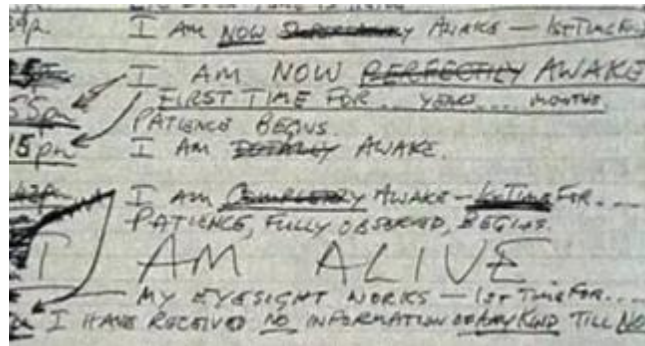 I AM NOW AWAKE — 1ST TIME FOR
I AM NOW PERFECTLY AWAKE
55pm FIRST TIME FOR... YEARS... MONTHS.
PATIENCE BEGINS.
15pm I AM TOTALLY AWAKE.
I AM COMPLETELY AWAKE — 1ST TIME FOR....
PATIENCE, FULLY OBSERVED, BEGINS.
I AM ALIVE
MY EYESIGHT WORKS — 1ST TIME FOR....
I HAVE RECEIVED NO INFORMATION OF ANY KIND TILL NO